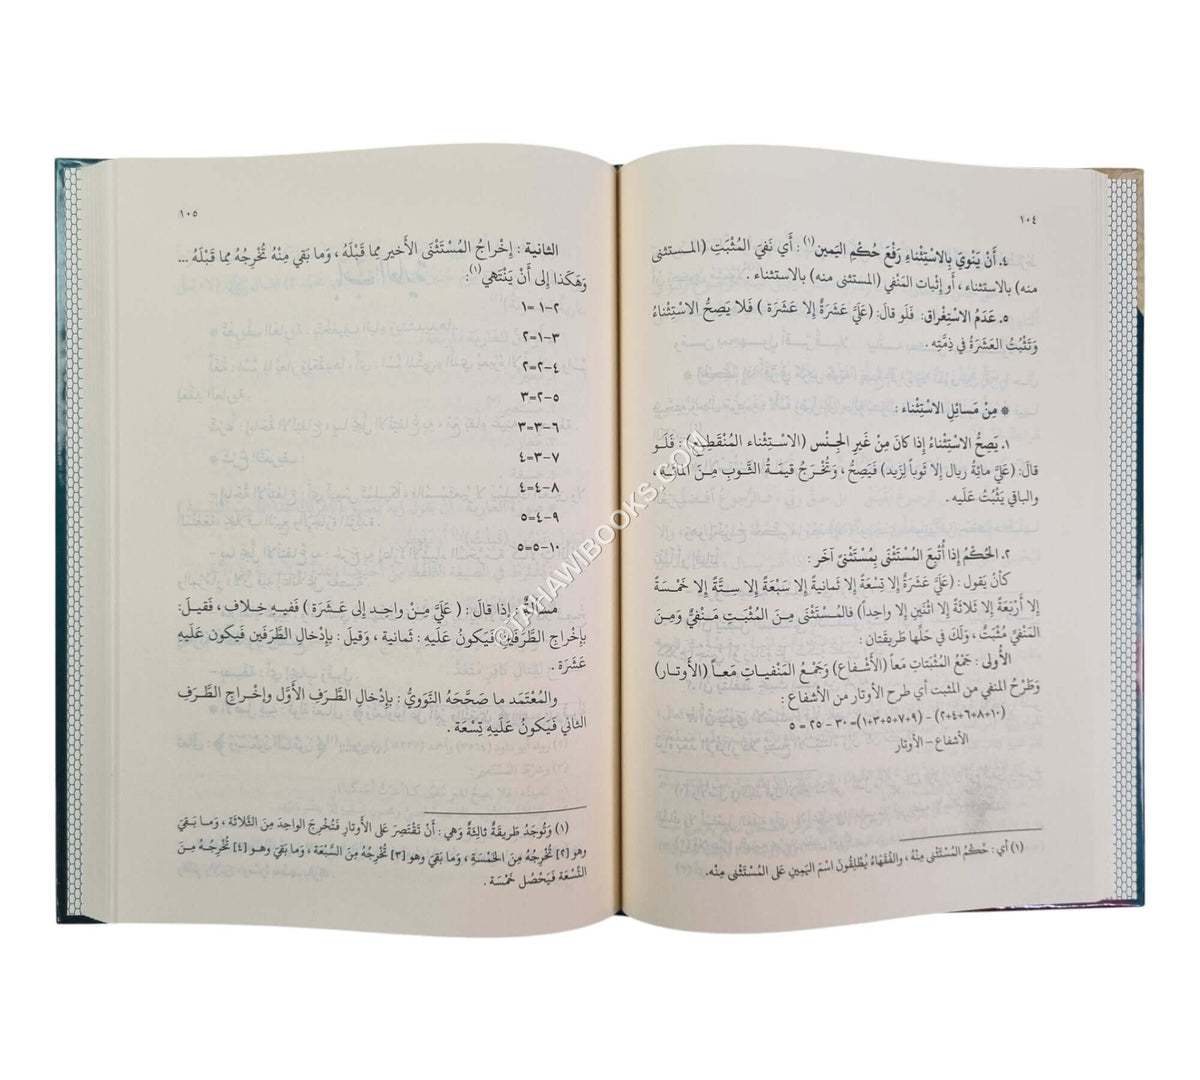 ١٠٤
٤. أَنْ يَنْوِيَ بِالاسْتِثْنَاءِ رَفْعَ حُكْمِ اليَمين(١) : أَي نَفيَ المُثْبَتِ (المستثنى
منه) بالاستثناء ، أو إثبات المَنْفي (المستثنى منه) بالاستثناء .
٥. عَدَمُ الاسْتِغْراق: فَلَو قالَ: (عَلَيَّ عَشَرَةٌ إلا عَشَرَة ) فَلا يَصِحُّ الاسْتِثْنَاءُ
وَتَثْبُتُ العَشَرَةُ في ذِمَّتِه .
* مِنْ مَسائِلِ الاسْتِثْناء :
١. يَصِحُّ الاسْتِثْنَاءُ إذا كانَ مِنْ غَيرِ الجِنْس (الاسْتِثْناء المُنْقَطِع) : فَلَو
قالَ: (عَلَيَّ مائةُ ريال إلا ثوباً لِزيد) فَيَصِحُّ ، وَتُخْرَجُ قيمَةُ الثَّوبِ مِنَ المائة ،
والباقي يَثْبُتُ عَلَيه .
٢. الحُكْمُ إذا أُتْبِعَ المُسْتَثْنَى بِمُسْتَثْنىً آخَر :
كأنْ يَقول: (عَلَيَّ عَشَرَةٌ إلا تِسْعَةً إلا ثَمانيةً إلا سَبْعَةً إلا سِتَّةً إلا خَمْسَةً
إلا أَرْبَعَةً إلا ثَلاثَةً إلا اثْنَينِ إلا واحِداً) فالمُسْتَثْنى مِنَ المُثْبَتِ مَنْفيٌّ وَمِنَ
المَنْفيِّ مُثْبَتٌ ، وَلَكَ في حَلِّها طَريقَتان:
الأُولى: جَمْعُ المُثْبَتاتِ مَعاً (الأَشْفاع) وَجَمْعُ المَنْفياتِ مَعاً (الأوتار)
وَطَرْحُ المنفي من المثبت أي طرح الأوتار من الأشفاع :
(١٠+٨+٦+٤+٢) – (٩+٧+٥+٣+١)= ٣٠ – ٢٥ = ٥
الأشفاع – الأوتار
(١) أي: حُكْمُ المُسْتَثْنى مِنْهُ ، والفُقَهاءُ يُطْلِقُونَ اسْمَ اليَمينِ عَلى المُسْتَثْنى مِنْه.
١٠٥
الثانية : إخْراجُ المُسْتَثْنَى الأَخيرِ مِما قَبْلَهُ ، وَما بَقي مِنْهُ تُخْرِجُهُ مِما قَبْلَهُ ...
وَهَكَذا إلى أنْ يَنْتَهي(١):
٢–١ =١
٣–١=٢
٤–٢=٢
٥–٢=٣
٦–٣=٣
٧–٣=٤
٨–٤=٤
٩–٤=٥
١٠–٥=٥
مسألة: إذا قالَ: ( عَلَيَّ مِنْ واحِدٍ إلى عَشَرَة ) فَفيهِ خِلاف ، فَقيلَ:
بإخْراج الطَّرَفَينِ فَيَكونُ عَلَيهِ: ثَمانية ، وَقيلَ: بإدْخالِ الطَّرَفَينِ فَيَكون عَلَيهِ
عَشَرَة .
والمُعْتَمَد ما صَحَّحَهُ النَّوَويُّ : بإدْخالِ الطَّرَفِ الأَوَّل وإخْراجِ الطَّرَفِ
الثاني فَيَكونُ عَلَيهِ تِسْعَة .
(١) وَتُوجَدُ طَريقَةٌ ثالِثَةٌ وَهي: أنْ تَقْتَصِرَ عَلى الأوتارِ فَتُخْرِجَ الواحِدَ مِنَ الثَّلاثَة ، وَما بَقيَ
وهو [٢] تُخْرِجُهُ مِنَ الخَمْسَةِ ، وَما بَقيَ وهو [٣] تُخْرِجُهُ مِنَ السَّبْعَة ، وَما بَقيَ وهو [٤] تُخْرِجُهُ مِنَ
التِّسْعَة فَيَحْصُل خَمْسَة .
@TAHAWIBOOKS.COM